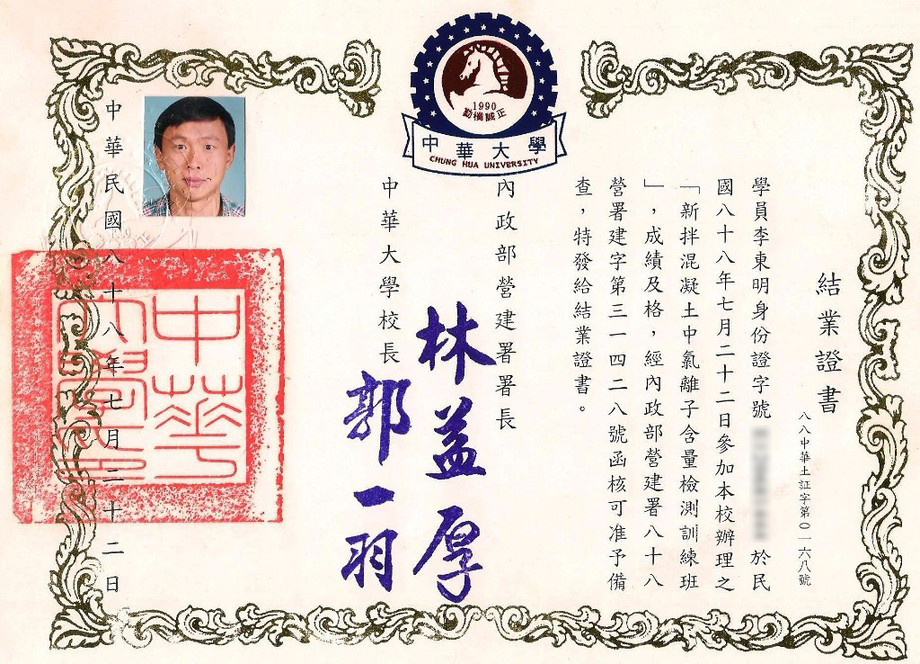 1990
勤樸誠正
中華大學
CHUNG HUA UNIVERSITY
結業證書
八八中華土証字第〇一六八號
學員李東明身份證字號 於民
國八十八年七月二十二日參加本校辦理之
「新拌混凝土中氯離子含量檢測訓練班
」，成績及格，經內政部營建署八十八
營署建字第三一四二八號函核可准予備
查，特發給結業證書。
內政部營建署署長
林益厚
中華大學校長
郭一羽
中華民國八十八年七月二十二日
中華
大學印